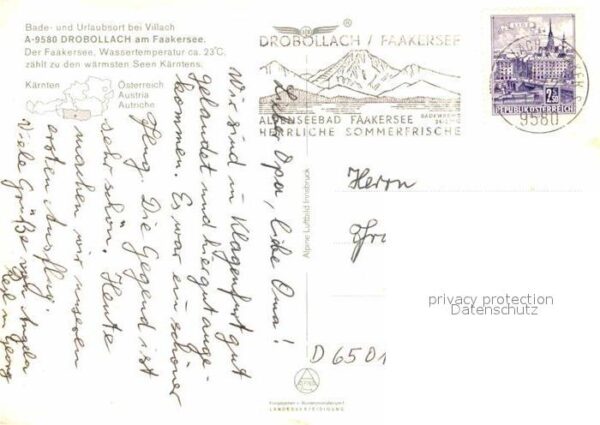 Bade- und Urlaubsort bei Villach
A-9580 DROBOLLACH am Faakersee.
Der Faakersee, Wassertemperatur ca. 23°C,
zählt zu den wärmsten Seen Kärntens.
Kärnten
Österreich
Austria
Autriche
®
DROBOLLACH / FAAKERSEE
ALPENSEEBAD FAAKERSEE
HERRLICHE SOMMERFRISCHE
2.50
REPUBLIK ÖSTERREICH
9580
Lieber Opa, liebe Oma!
Wir sind in Klagenfurt gut
gelandet und hier gut ange-
kommen. Es war ein schöner
Flug. Die Gegend ist
sehr schön. Heute
machen wir unseren
ersten Ausflug.
Viele Grüße von Angela
Georg
Alpine Luftbild Innsbruck
Herrn
D 6501
LANDESVERTEIDIGUNG
privacy protection
Datenschutz